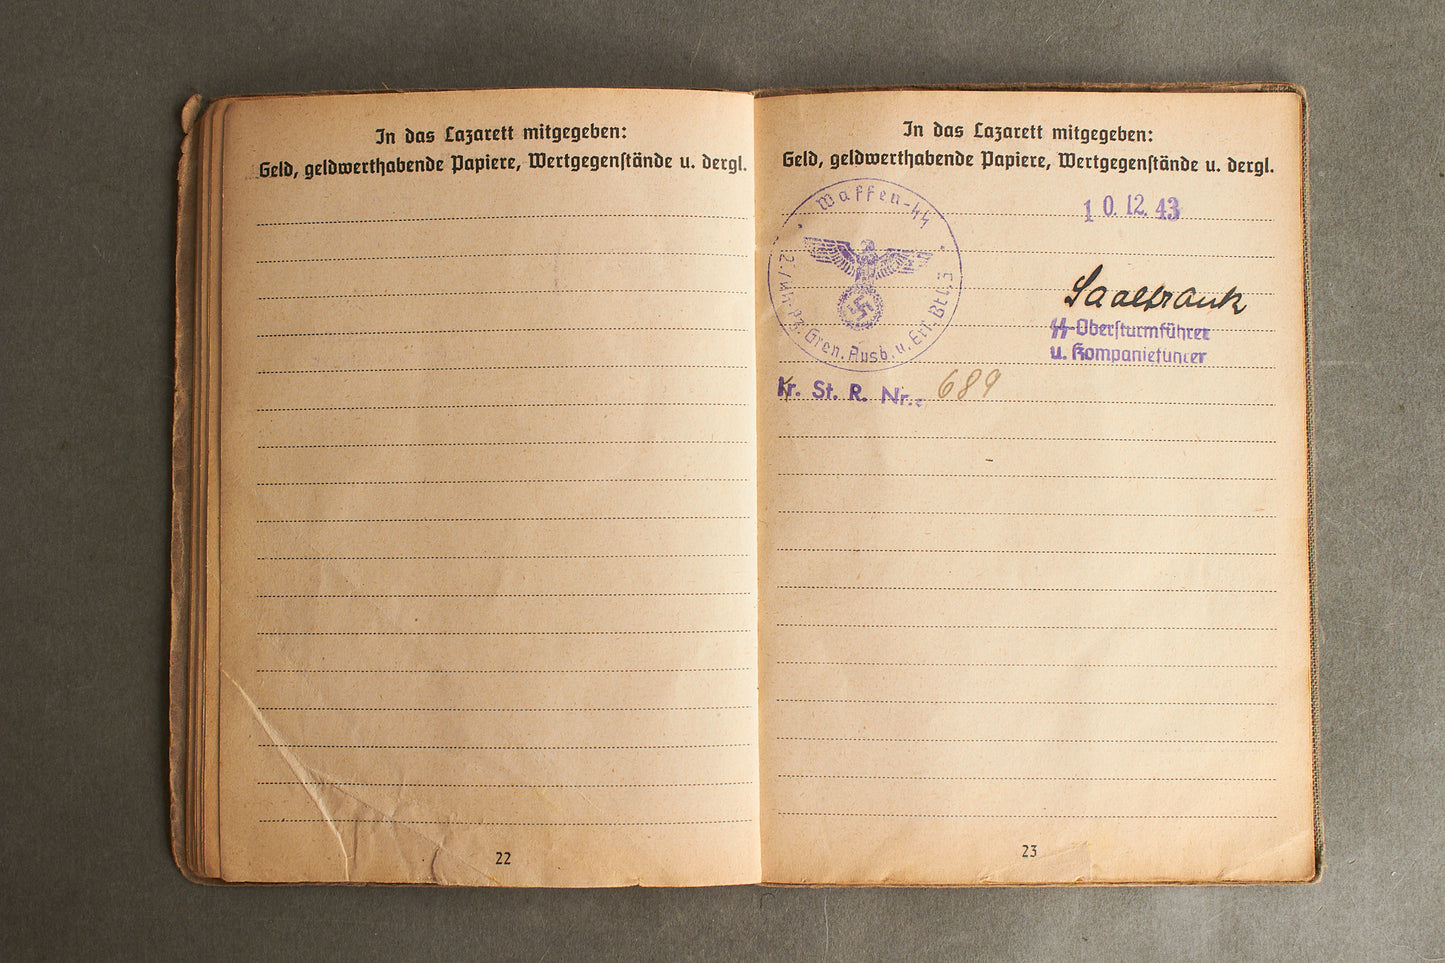 In das Lazarett mitgegeben:
Geld, geldwerthabende Papiere, Wertgegenstände u. dergl.
22
In das Lazarett mitgegeben:
Geld, geldwerthabende Papiere, Wertgegenstände u. dergl.
Waffen-SS
2./SS-Pz. Gren. Ausb. u. Ers. Btl. 3
10. 12. 43
Saalfrank
SS-Obersturmführer
u. Kompanieführer
Kr. St. R. Nr.: 689
23